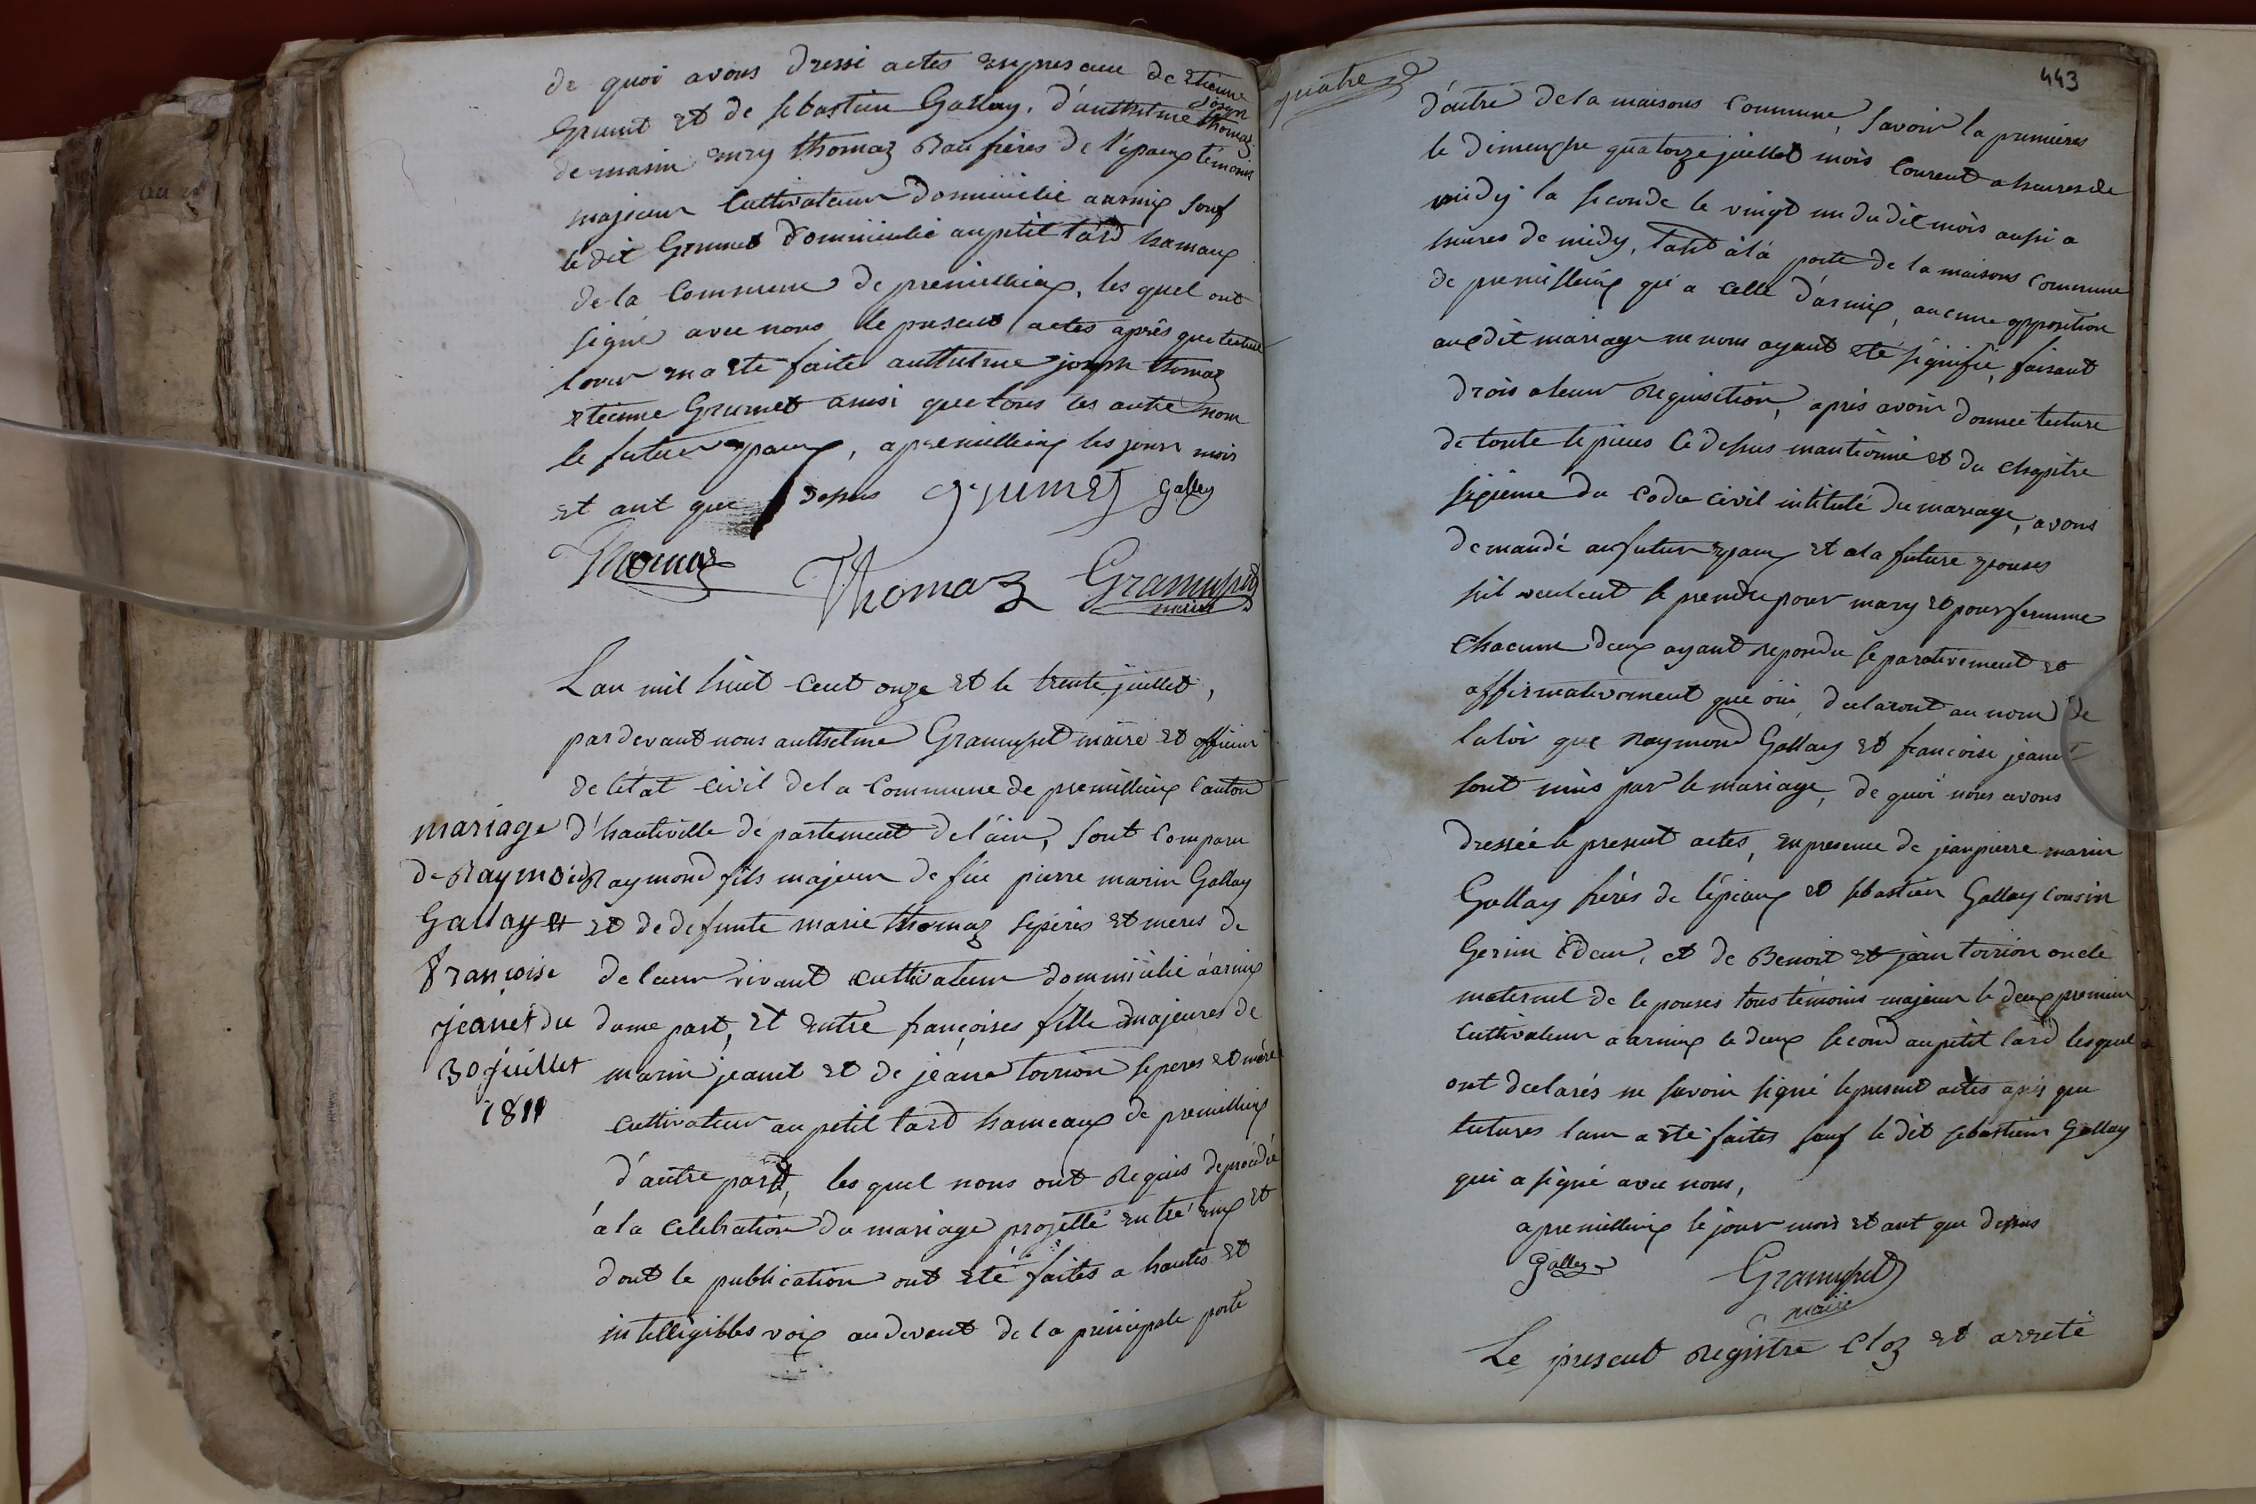 de quoi avons dressé actes en presance de etienne
Grumet et de sebastien Gallay, d'anthelme joseph thomaz
de marin emry thomaz Beau frères de l'epaux temoins
majeur Cultivateur domicilié a armix sauf
le dit Grumet domicilié au petit tard hamaux
de la Commune de premillieux, les quel ont
signé avec nous le present actes après que lecture
leur en a ete faite anthelme joseph thomaz
etienne Grumet ainsi que tous les autre nom
le futur epaux, a premillieux les jour mois
et ant que dessus Grumet Galley
Thomaz Thomaz Gramusset
maire
Lan mil huit cent onze et le trente juillet,
par devant nous anthelme Gramusset maire et officier
de letat civil de la Commune de premillieux Canton
d'hauteville departement de l'ain, sont comparu
Raymond fils majeur de fue pierre marin Gallay
et de defunte marie thomaz ses pères et meres de
de leur vivant cultivateur domicilié à armix
dume part, et entre françoises fille majeures de
marin jeanet et de jeane toirion se peres et mère
cultivateur au petit tard hameaux de premillieux
d'autre part, les quel nous ont Requis de procédée
à la celebration du mariage projetté entre eux et
dont le publication ont été faites a hautes et
intelligibles voix au devant de la principale porte
mariage
de Raymond
Gallay et
françoise
jeanet du
30 juillet
1811
quatre
443
d'autre de la maisons Commune, Savoir la premières
le dimenche quatorze juillet mois Courent a heures de
midy la seconde le vingt un du dit mois aussi a
heures de midy, tant à la porte de la maisons commune
de premillieux que a celle d'armix, aucune opposition
au dit mariage ne nous ayant été signifié, faisant
drois a leur Requisition, après avoir donnee lecture
de toute le pieces Ci dessus mantionné et du chapitre
sixieme du Code Civil intitulé du mariage, avons
demandé au futur epaux et a la future epouses
sil veulent se prendre pour mary et pour femme
chacun deux ayant repondu separativement et
affirmativement que oui, declaront au nom de
la loi que Raymond Gallay et francoise jeanet
sont unis par le mariage, de quoi nous avons
dressée le present actes, en presence de jean pierre marin
Gallay frères de l'épaux et sebastien Gallay cousin
Germin Idem, et de Benoit et jean toirion oncle
maternel de lepouses tous temoins majeur le deux premier
cultivateur a armix le deux second au petit tard les quel
ont declarés ne savoir signé le present actes apès que
lectures leur a ete faites sauf le dit sebastien Gallay
qui a signé avec nous,
a premillieux le jour mois et ant que dessus
Galley Gramusset
maire
Le present Registre cloz et arreté